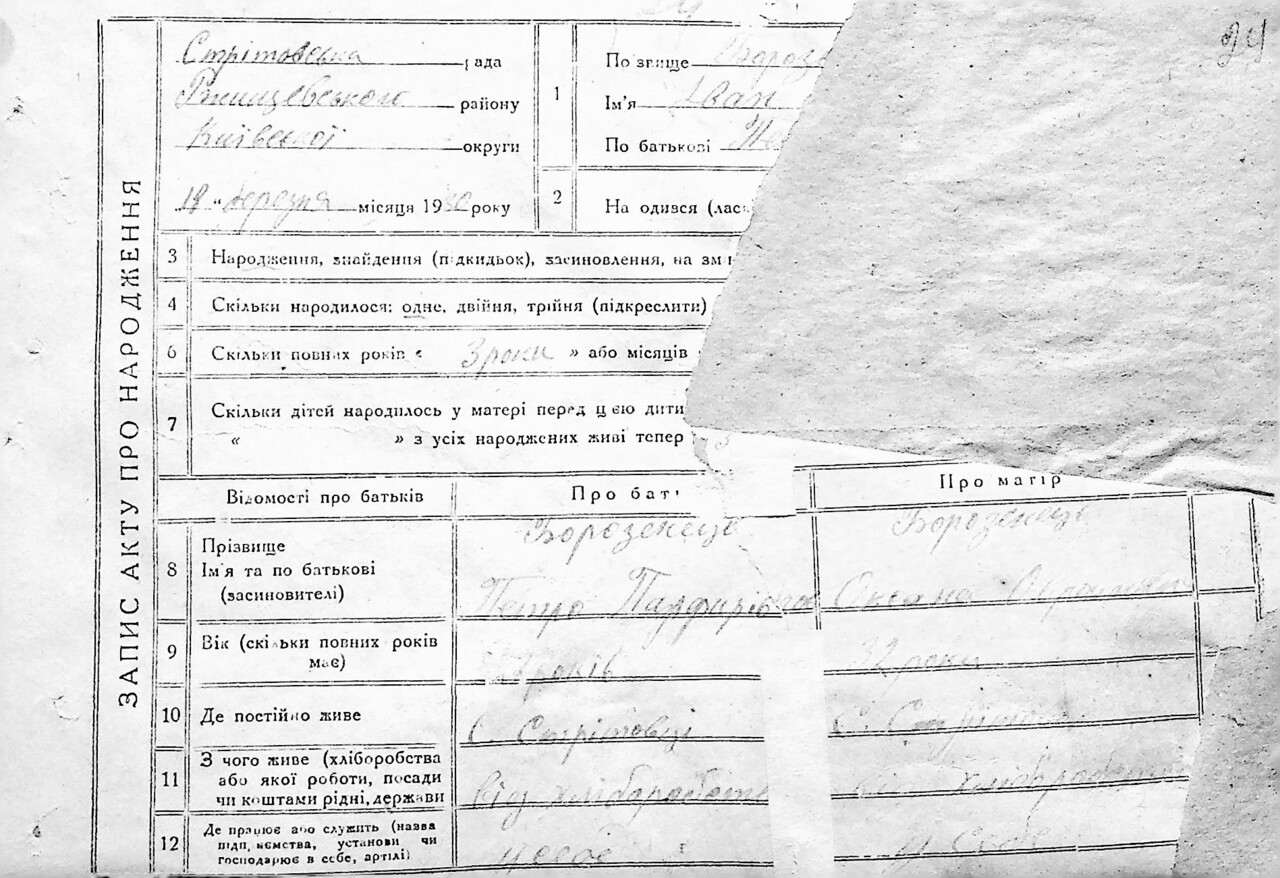 24
Стрітовська рада
Ржищевського району
Київської округи
"18" березня місяця 1930 року
1
По звище Бороз
Ім'я Іван
По батькові
2
На одився (ласт
ЗАПИС АКТУ ПРО НАРОДЖЕННЯ
3 Народження, знайдення (підкидьок), засиновлення, на зм
4 Скільки народилося: одне, двійня, трійня (підкреслити)
6 Скільки повних років « 3 роки » або місяців
7 Скільки дітей народилось у матері перед цією дити
« » з усіх народжених живі тепер
Відомості про батьків Про бать Про матір
8 Прізвище
Ім'я та по батькові
(засновителі)
Борозенець Борозенець
Петро Парфирович Оксана
9 Вік (скільки повних років
має)
років 32 роки
10 Де постійно живе
с. Стрітовці с.
11 З чого живе (хліборобства
або якої роботи, посади
чи коштами рідні, держави
від хліборобства від хліборобства
12 Де працює або служить (назва
підприємства, установи чи
господарює в себе, артілі)
у себе у себе